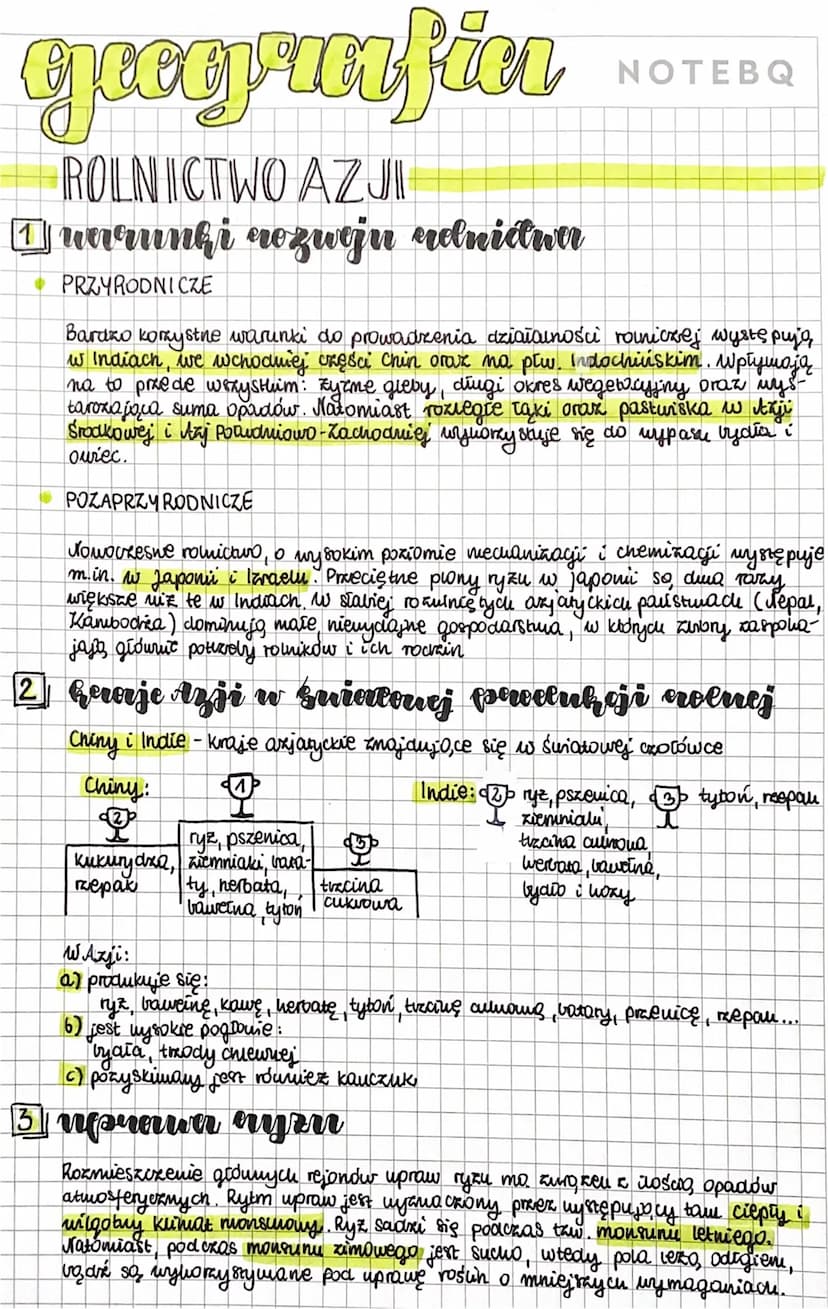 geografia
NOTEBQ
ROLNICTWO AZJI
1 warunki rozwoju rolnictwa
• PRZYRODNICZE
Bardzo korzystne warunki do prowadzenia działalności rolniczej występują
w Indiach, we wschodniej części Chin oraz na płw. Indochińskim. Wpływają
na to przede wszystkim: żyzne gleby, długi okres wegetacyjny oraz wys-
tarczająca suma opadów. Natomiast rozległe łąki oraz pastwiska w Azji
Środkowej i Azji Południowo-Zachodniej wykorzystuje się do wypasu bydła i
owiec.
• POZAPRZYRODNICZE
Nowoczesne rolnictwo, o wysokim poziomie mechanizacji i chemizacji występuje
m.in. w Japonii i Izraelu. Przeciętne plony ryżu w japonii są dwa razy
większe niż te w Indiach. W słabiej rozwiniętych azjatyckich państwach (Nepal,
Kambodża) dominują małe, niewydajne gospodarstwa, w których zbiory zaspoka-
jają głównie potrzeby rolników i ich rodzin
2 kraje Azji w światowej produkcji rolnej
Chiny i Indie - kraje azjatyckie znajdujące się w światowej czołówce
Chiny:
2
kukurydza,
rzepak
1
ryż, pszenica,
ziemniaki, bata-
ty, herbata,
bawełna, tytoń
3
trzcina
cukrowa
Indie: 2 ryż, pszenica,
ziemniaki,
trzcina cukrowa,
herbata, bawełna,
bydło i kozy
3 tytoń, rzepak
W Azji:
a) produkuje się:
ryż, bawełnę, kawę, herbatę, tytoń, trzcinę cukrową, bataty, pszenicę, rzepak...
b) jest wysokie pogłowie:
bydła, trzody chlewnej
c) pozyskiwany jest również kauczuk
3 uprawa ryżu
Rozmieszczenie głównych rejonów upraw ryżu ma związek z ilością opadów
atmosferycznych. Rytm upraw jest wyznaczony przez występujący tam ciepły i
wilgotny klimat monsunowy. Ryż sadzi się podczas tzw. monsunu letniego.
Natomiast, podczas monsunu zimowego, jest sucho, wtedy pola leżą odłogiem,
bądź są wykorzystywane pod uprawę roślin o mniejszych wymaganiach.